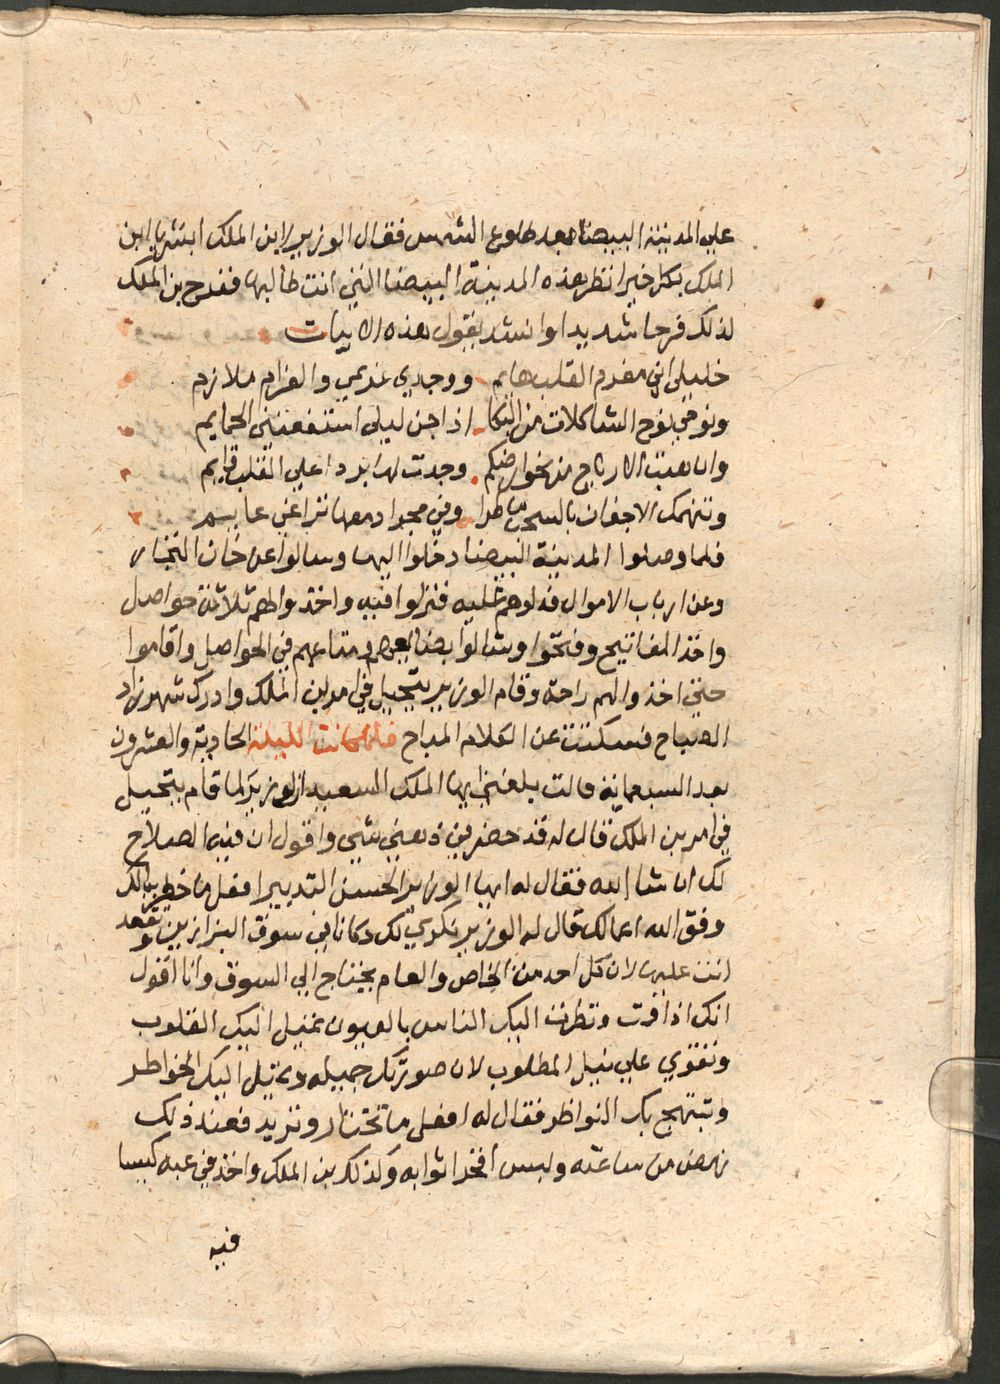 علي المدينة البيضا بعد طلوع الشمس فقال الوزير لابن الملك ابشر يا ابن
الملك بكل خير انظر هذه المدينة البيضا التي انت طالبها ففرح بن الملك
لذلك فرحا شديدا وانشد يقول هذه الابيات
خليلي اني مغرم القلب هايم ووجدي غريمي والغرام ملازم
ونوحي بنوح الثاكلات من البكا اذا جن ليلي اسعفتني الحمايم
وان هبت الارياح من نحو ارضكم وجدت لها بردا علي القلب قايم
وتنهمك الاجفان بالسحب ماطرا وفي
فلما وصلوا المدينة البيضا دخلوا اليها وسالوا عن خان التجار
وعن ارباب الاموال فدلوهم عليه فنزلوا فيه واخذوا لهم ثلاثة حواصل
واخذ المفاتيح وفتحوا وشالوا بضايعهم ومتاعهم في الحواصل واقاموا
حتي اخذوا لهم راحة وقام الوزير يتحيل في امر ابن الملك وادرك شهرزاد
الصباح فسكتت عن الكلام المباح فلما كانت الليلة الحادية والعشرون
بعد السبعماية قالت بلغني ايها الملك السعيد ان الوزير لما قام يتحيل
في امر بن الملك قال له قد حضر في ذهني شي واقول ان فيه الصلاح
لك ان شا الله فقال له ايها الوزير الحسن التدبير افعل ما خطر ببالك
وفق الله اعمالك قال له الوزير نكري لك دكانا في سوق البزازين وتقعد
انت عليها لان كل احد من الخاص والعام يحتاج الي السوق وانا اقول
انك اذا ونظرت اليك الناس بالعيون تميل اليك القلوب
وتقوي علي نيل المطلوب لان صورتك جميله وتميل اليك الخواطر
وتبتهج بك النواظر فقال له افعل ما تختار وتريد فعند ذلك
نهض من ساعته ولبس افخر اثوابه وكذلك بن الملك واخذ في عبه كيسا
فيه